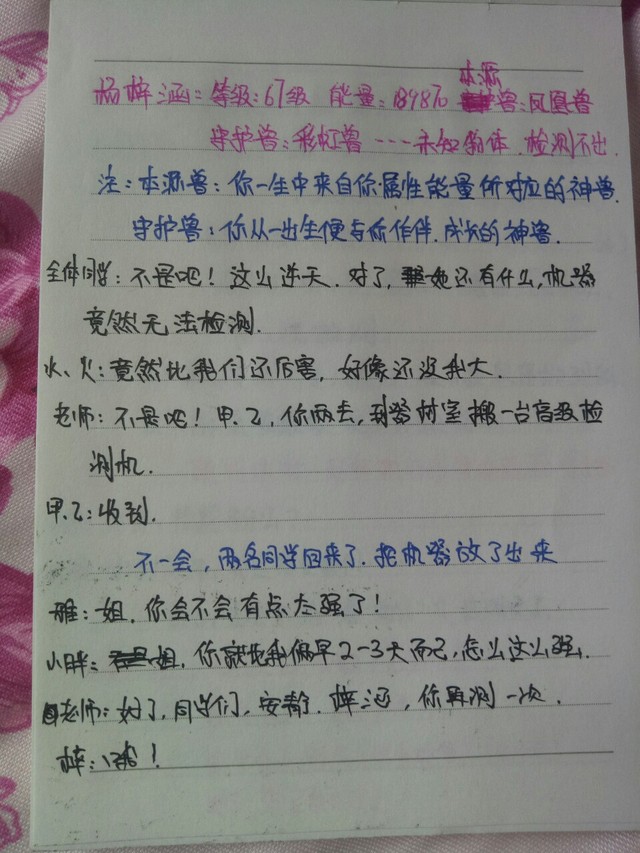 杨梓涵:等级:67级 能量:139870 本源兽:凤凰兽
守护兽:彩虹兽---未知物体.检测不出.
注:本源兽:你一生中来自你属性能量所对应的神兽.
守护兽:你从一出生便与你作伴.成长的神兽.
全体同学:不是吧!这么逆天.对了,她还有什么,机器
竟然无法检测.
水、火:竟然比我们还厉害,好像还没我大.
老师:不是吧!甲.乙,你两去,到器材室搬一台高级检
测机.
甲.乙:收到.
不一会,两名同学回来了.把机器放了出来
雅:姐,你会不会有点太强了!
小胖:姐,你就比我俩早2-3天而已,怎么这么强.
老师:好了,同学们,安静.梓涵,你再测一次.
梓:哦!